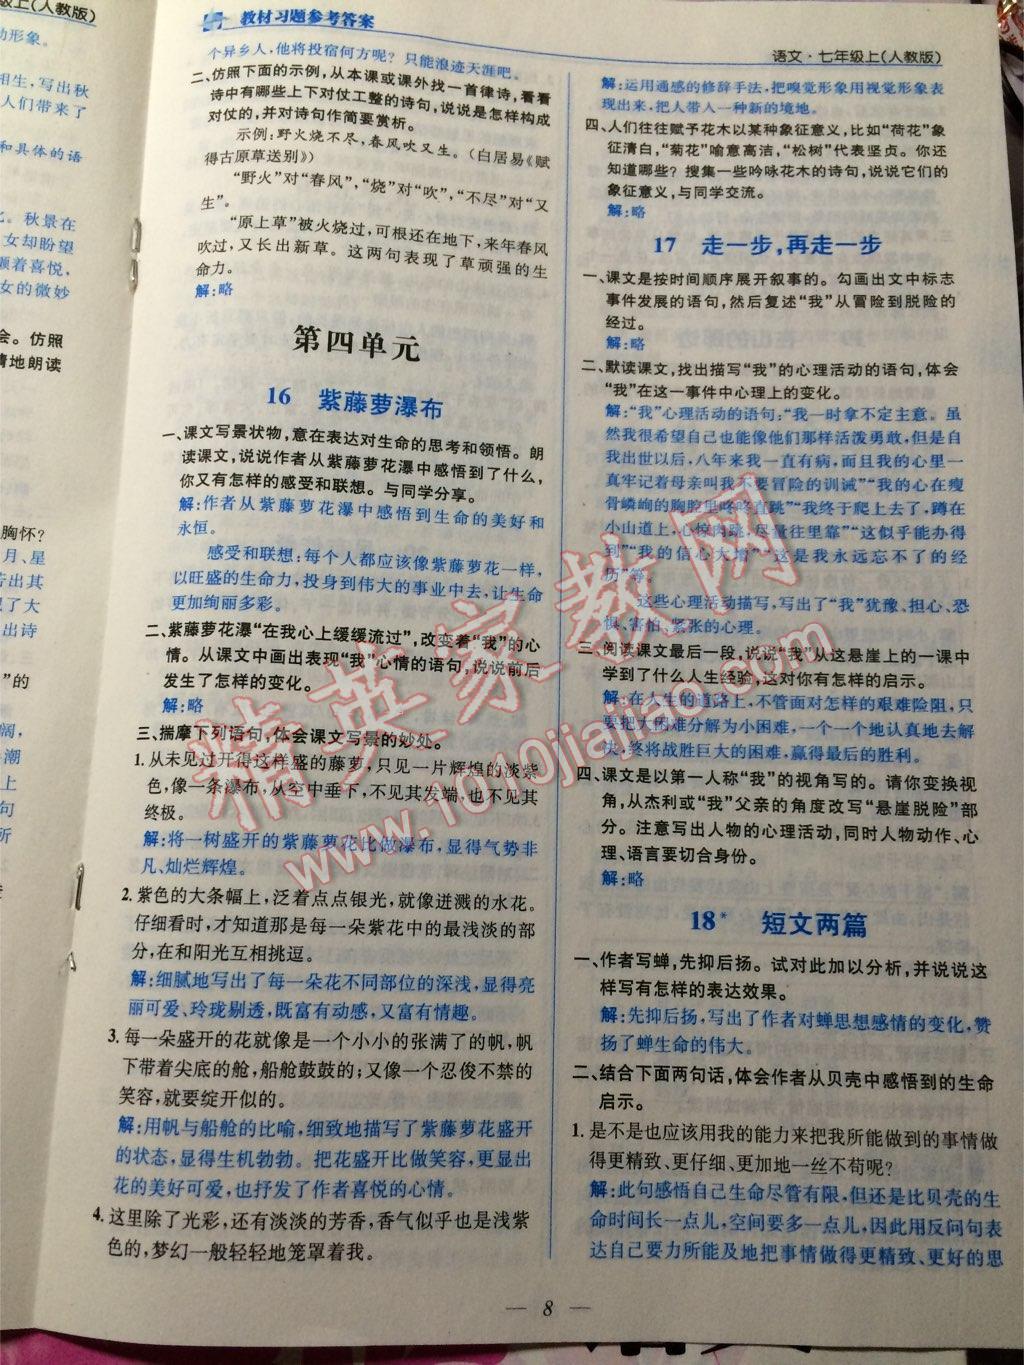 级上(人教版)
动形象。
相生，写出秋
人们带来了
和具体的语
。秋景在
女却盼望
颜着喜悦，
女的微妙
会。仿照
情地朗读
胸怀？
月、星
写出其
现了大
出诗
”的
阔，
潮
上
句
所
教材习题参考答案
语文·七年级上(人教版)
个异乡人，他将投宿何方呢？只能浪迹天涯吧。
二、仿照下面的示例，从本课或课外找一首律诗，看看
诗中有哪些上下对仗工整的诗句，说说是怎样构成
对仗的，并对诗句作简要赏析。
示例：野火烧不尽，春风吹又生。（白居易《赋
得古原草送别》）
“野火”对“春风”，“烧”对“吹”，“不尽”对“又
生”。
“原上草”被火烧过，可根还在地下，来年春风
吹过，又长出新草。这两句表现了草顽强的生
命力。
解：略
第四单元
16 紫藤萝瀑布
一、课文写景状物，意在表达对生命的思考和领悟。朗
读课文，说说作者从紫藤萝花瀑中感悟到了什么，
你又有怎样的感受和联想。与同学分享。
解：作者从紫藤萝花瀑中感悟到生命的美好和
永恒。
感受和联想：每个人都应该像紫藤萝花一样，
以旺盛的生命力，投身到伟大的事业中去，让生命
更加绚丽多彩。
二、紫藤萝花瀑“在我心上缓缓流过”，改变着“我”的心
情。从课文中画出表现“我”心情的语句，说说前后
发生了怎样的变化。
解：略
三、揣摩下列语句，体会课文写景的妙处。
1. 从未见过开得这样盛的藤萝，只见一片辉煌的淡紫
色，像一条瀑布，从空中垂下，不见其发端，也不见其
终极。
解：将一树盛开的紫藤萝花比做瀑布，显得气势非
凡、灿烂辉煌。
2. 紫色的大条幅上，泛着点点银光，就像迸溅的水花。
仔细看时，才知道那是每一朵紫花中的最浅淡的部
分，在和阳光互相挑逗。
解：细腻地写出了每一朵花不同部位的深浅，显得亮
丽可爱、玲珑剔透，既富有动感，又富有情趣。
3. 每一朵盛开的花就像是一个小小的张满了的帆，帆
下带着尖底的舱，船舱鼓鼓的；又像一个忍俊不禁的
笑容，就要绽开似的。
解：用帆与船舱的比喻，细致地描写了紫藤萝花盛开
的状态，显得生机勃勃。把花盛开比做笑容，更显出
花的美好可爱，也抒发了作者喜悦的心情。
4. 这里除了光彩，还有淡淡的芳香，香气似乎也是浅紫
色的，梦幻一般轻轻地笼罩着我。
解：运用通感的修辞手法，把嗅觉形象用视觉形象表
现出来，把人带入一种新的境地。
四、人们往往赋予花木以某种象征意义，比如“荷花”象
征清白，“菊花”喻意高洁，“松树”代表坚贞。你还
知道哪些？搜集一些吟咏花木的诗句，说说它们的
象征意义，与同学交流。
解：略
17 走一步，再走一步
一、课文是按时间顺序展开叙事的。勾画出文中标志
事件发展的语句，然后复述“我”从冒险到脱险的
经过。
解：略
二、默读课文，找出描写“我”的心理活动的语句，体会
“我”在这一事件中心理上的变化。
解：“我”心理活动的语句：“我一时拿不定主意。虽
然我很希望自己也能像他们那样活泼勇敢，但是自
我出世以后，八年来我一直有病，而且我的心里一
直牢记着母亲叫我不要冒险的训诫”“我的心在瘦
骨嶙峋的胸腔里咚咚直跳”“我终于爬上去了，蹲在
小山道上，心惊肉跳，尽量往里靠”“这似乎能办得
到”“我的信心大增”“这是我永远忘不了的经
历”等。
这些心理活动描写，写出了“我”犹豫、担心、恐
惧、害怕、紧张的心理。
三、阅读课文最后一段，说说“我”从这悬崖上的一课中
学到了什么人生经验，这对你有怎样的启示。
解：在人生的道路上，不管面对怎样的艰难险阻，只
要把大困难分解为小困难，一个一个地认真地去解
决，终将战胜巨大的困难，赢得最后的胜利。
四、课文是以第一人称“我”的视角写的。请你变换视
角，从杰利或“我”父亲的角度改写“悬崖脱险”部
分。注意写出人物的心理活动，同时人物动作、心
理、语言要切合身份。
解：略
18* 短文两篇
一、作者写蝉，先抑后扬。试对此加以分析，并说说这
样写有怎样的表达效果。
解：先抑后扬，写出了作者对蝉思想感情的变化，赞
扬了蝉生命的伟大。
二、结合下面两句话，体会作者从贝壳中感悟到的生命
启示。
1. 是不是也应该用我的能力来把我所能做到的事情做
得更精致、更仔细、更加地一丝不苟呢？
解：此句感悟自己生命尽管有限，但还是比贝壳的生
命时间长一点儿，空间要多一点儿，因此用反问句表
达自己要力所能及地把事情做得更精致、更好的思
— 8 —
精英家教网
www.1010jiajiao.com